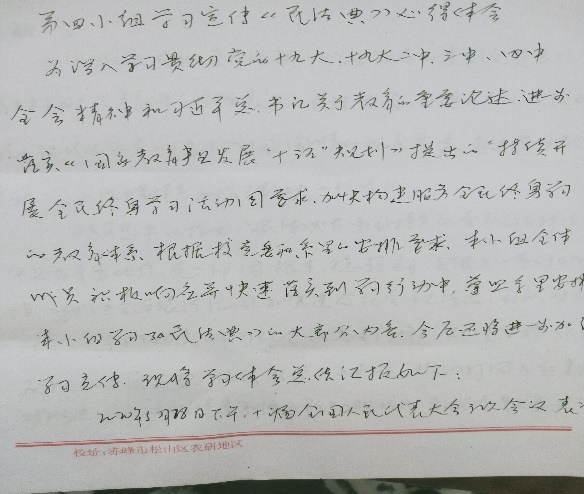 第四小组学习宣传《民法典》心得体会
为深入学习贯彻党的十九大、十九大二中、三中、四中
全会精神和习近平总书记关于教育的重要论述,进步
落实《国家教育事业发展"十三五"规划》提出的"持续开
展全民终身学习活动"要求,加快构建服务全民终身学习
的教育体系,根据校党委和系里的安排要求,本小组全体
成员积极响应并快速落实到学习行动中,按照系里安排
本小组学习《民法典》的大部分内容,今后还将进一步加
学习宣传。现将学习体会总结汇报如下:
2020年5月28日下午十三届全国人民代表大会三次会议表
校址:赤峰市松山区农研地区